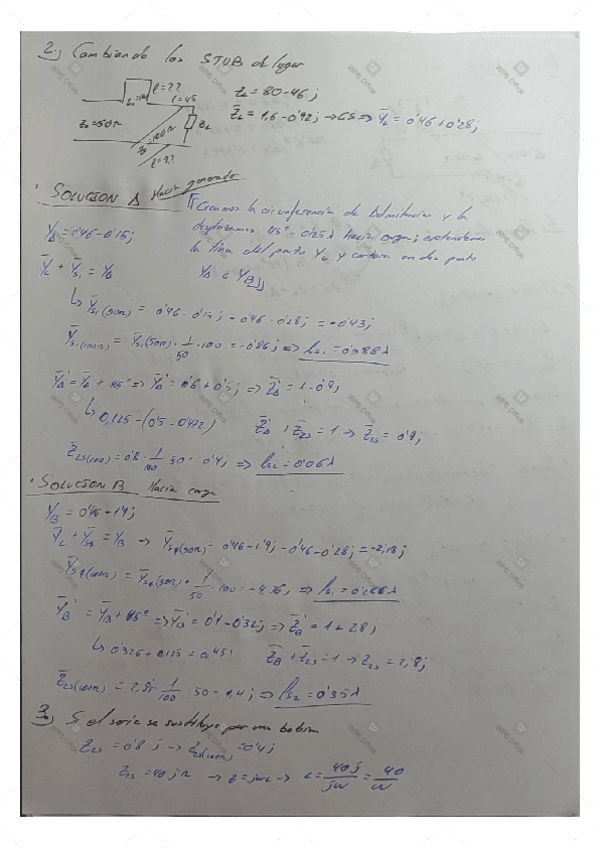 2.) Cambiando los STUB de lugar
l=??
Z₀=100
l=45
Z₀=50Ω
Z_L
100Ω
l=??
Z_L = 80-46j
Z̄_L = 1,6-0'92j → CS ⇒ Ȳ_L = 0'46+0'28j
· SOLUCION A Hacia generador
Creamos la circunferencia de Admitancias y la
desplazamos 45° = 0'125λ hacia carga; extendemos
la línea del punto Y_L y cortara en dos puntos
Y_A e Y_B
Y_A = 0'46-0'15j
Ȳ_L + Ȳ_S1 = Y_A
↳ Ȳ_S1(50Ω) = 0'46-0'15j-0'46-0'28j = -0'43j
Ȳ_S1(100Ω) = Ȳ_S1(50Ω)·1/50·100 = -0'86j ⇒ l_S1 = 0'388λ
Ȳ_A' = Ȳ_A + 45° ⇒ Ȳ_A' = 0'6+0'5j ⇒ Z̄_A' = 1-0'8j
↳ 0,125-(0'5-0'472)
Z̄_A' + Z̄_2S = 1 → Z̄_2S = 0'8j
Z̄_2S(100) = 0'8·1/100·50 = 0'4j ⇒ l_S2 = 0'06λ
· SOLUCION B Hacia carga
Y_B = 0'46-1'9j
Ȳ_L + Ȳ_S1 = Y_B → Ȳ_S1(50Ω) = 0'46-1'9j-0'46-0'28j = -2,18j
Ȳ_S1(100Ω) = Ȳ_S1(50Ω)·1/50·100 = -4,36j ⇒ l_S1 = 0'286λ
Ȳ_B' = Ȳ_B + 45° ⇒ Ȳ_B' = 0'1-0'32j ⇒ Z̄_B' = 1+2,8j
↳ 0'326+0,125 = 0,451
Z̄_B' + Z̄_2S = 1 → Z_2S = 2,8j
Z̄_2S(100Ω) = 2,8j·1/100·50 = 1,4j ⇒ l_S2 = 0'35λ
3.) Si el serie se sustituye por una bobina
Z_2S = 0'8j → Z_2S(100Ω) = 0'4j
Z_2S = 40jΩ → Z = jωL → L = 40j/jω = 40/ω